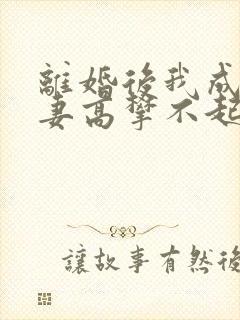 離婚後我成
妻高攀不起
讓故事有然後